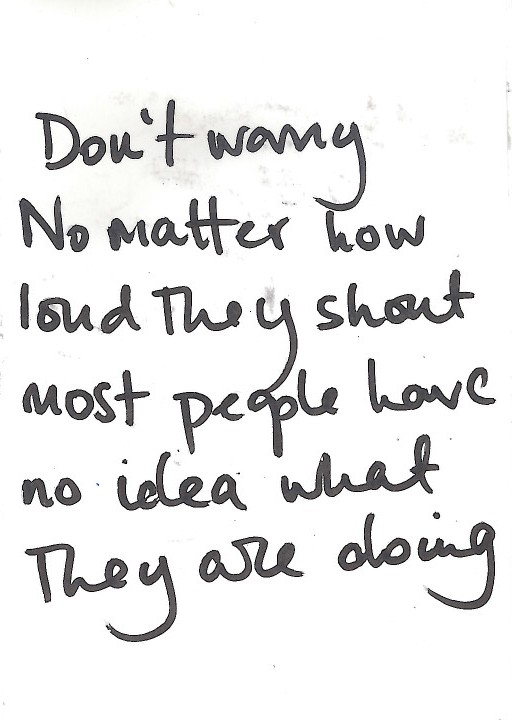 Don't worry
No matter how
loud They shout
most people have
no idea what
They are doing